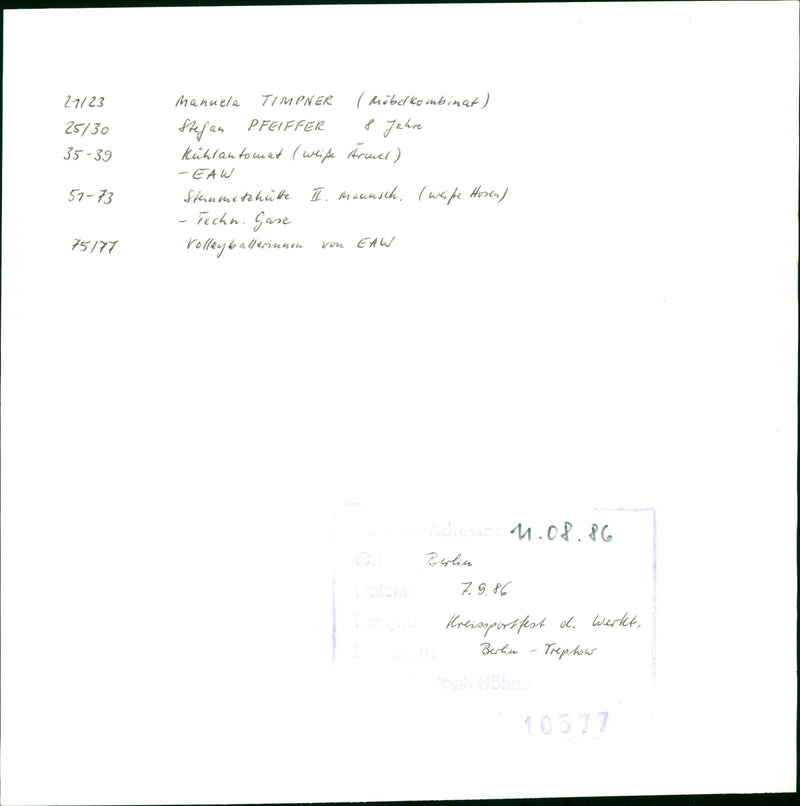 21/23 Manuela TIMPNER (Möbelkombinat)
25/30 Stefan PFEIFFER 8 Jahre
35-39 Kühlautomat (weiße Ärmel)
- EAW
51-73 Steinmetzhütte II. Mannsch. (weiße Hosen)
- Techn. Gase
75/77 Volleyballerinnen von EAW
-Adresse: 11.08.86
Ort Berlin
Datum: 7.9.86
Kreissportfest d. Werkt.
Berlin - Treptow
Höhne
10577